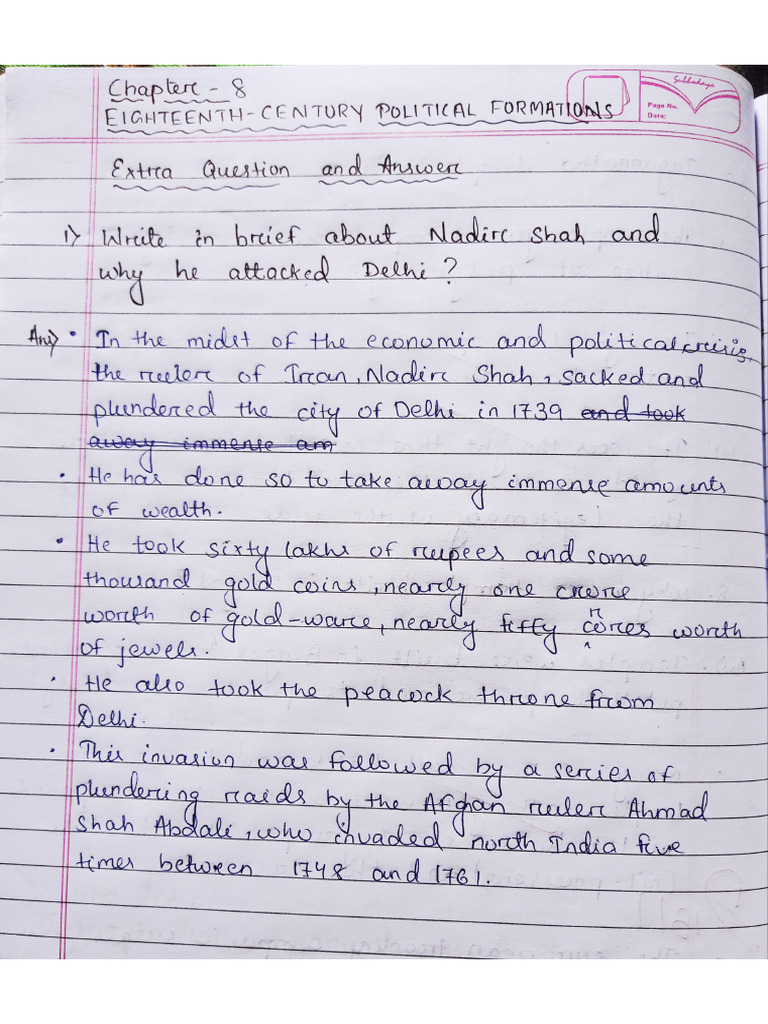 Chapter - 8
EIGHTEENTH-CENTURY POLITICAL FORMATIONS
Subhadaya
Page No.
Date:
Extra Question and Answer
1) Write in brief about Nadir Shah and
why he attacked Delhi?
Ans) • In the midst of the economic and political crisis,
the ruler of Iran, Nadir Shah, sacked and
plundered the city of Delhi in 1739 and took
away immense am
• He has done so to take away immense amounts
of wealth.
• He took sixty lakhs of rupees and some
thousand gold coins, nearly one crore
worth of gold-ware, nearly fifty crores worth
of jewels.
• He also took the peacock throne from
Delhi.
• This invasion was followed by a series of
plundering raids by the Afghan ruler Ahmad
Shah Abdali, who invaded north India five
times between 1748 and 1761.